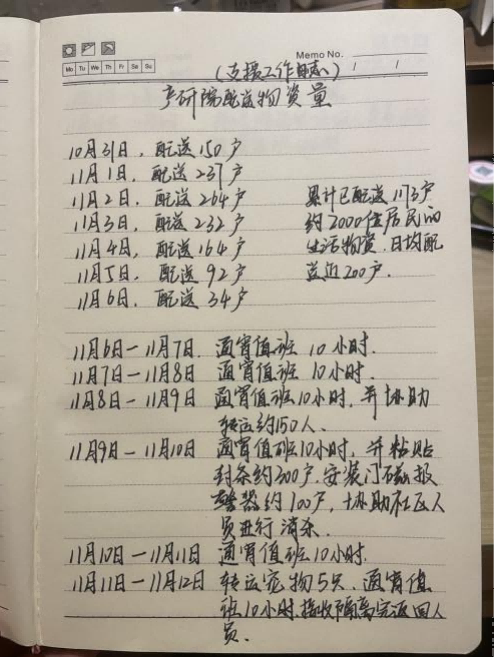 Memo No.
Mo Tu We Th Fr Sa Su
/ /
(支援工作日志)
产研院配送物资量
10月31日，配送150户
11月1日，配送237户
11月2日，配送264户
11月3日，配送232户
11月4日，配送164户
11月5日，配送92户
11月6日，配送34户
累计已配送1173户
约2000住居民的
生活物资.日均配
送近200户.
11月6日—11月7日.通宵值班10小时.
11月7日—11月8日 通宵值班10小时.
11月8日—11月9日 通宵值班10小时,并协助
转运约150人.
11月9日—11月10日 通宵值班10小时,并粘贴
封条约200户.安装门磁报
警器约100户,协助社区人
员进行消杀.
11月10日—11月11日 通宵值班10小时.
11月11日—11月12日 转运宠物5只.通宵值
班10小时.接收隔离完返回人
员.